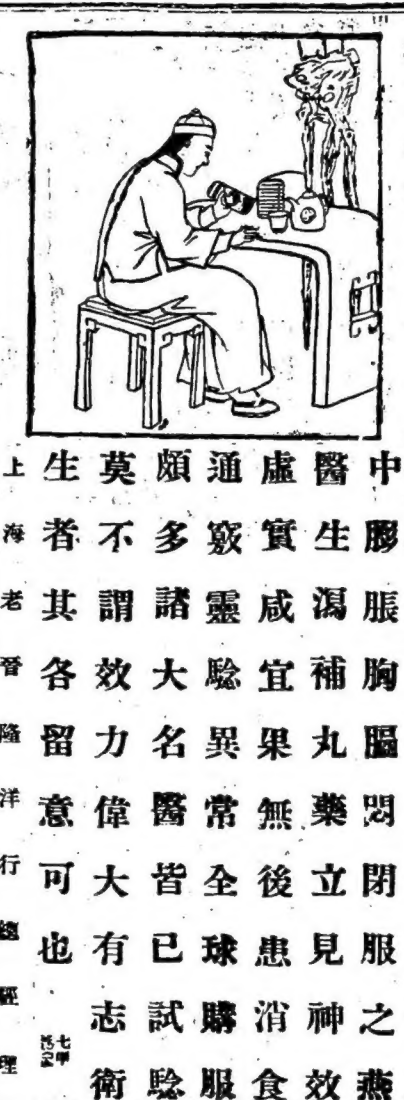 中膨脹胸膈悶閉服之燕
醫生瀉補丸藥立見神效
虛實咸宜果無後患消食
通竅靈騐異常全球購服
頗多諸大名醫皆已試騐
莫不謂效力偉大有志衛
生者其各留意可也
上海老晉隆洋行總經理